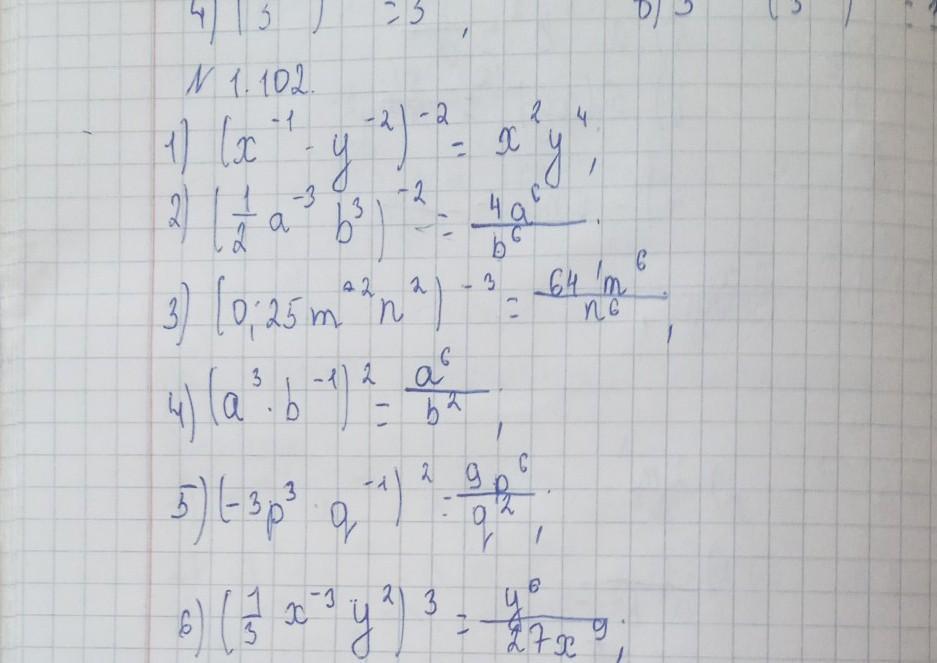 4) (3 ) = 3 , 6) 3 (3 ) = 1
N 1.102.
1) (x⁻¹ · y⁻²)⁻² = x²y⁴;
2) (1/2 a⁻³ b³)⁻² = 4a⁶/b⁶.
3) (0,25m⁻²n²)⁻³ = 64m⁶/n⁶;
4) (a³ · b⁻¹)² = a⁶/b²;
5) (-3p³ · q⁻¹)² = 9p⁶/q²;
6) (1/3 x⁻³ y²)³ = y⁶/27x⁹;